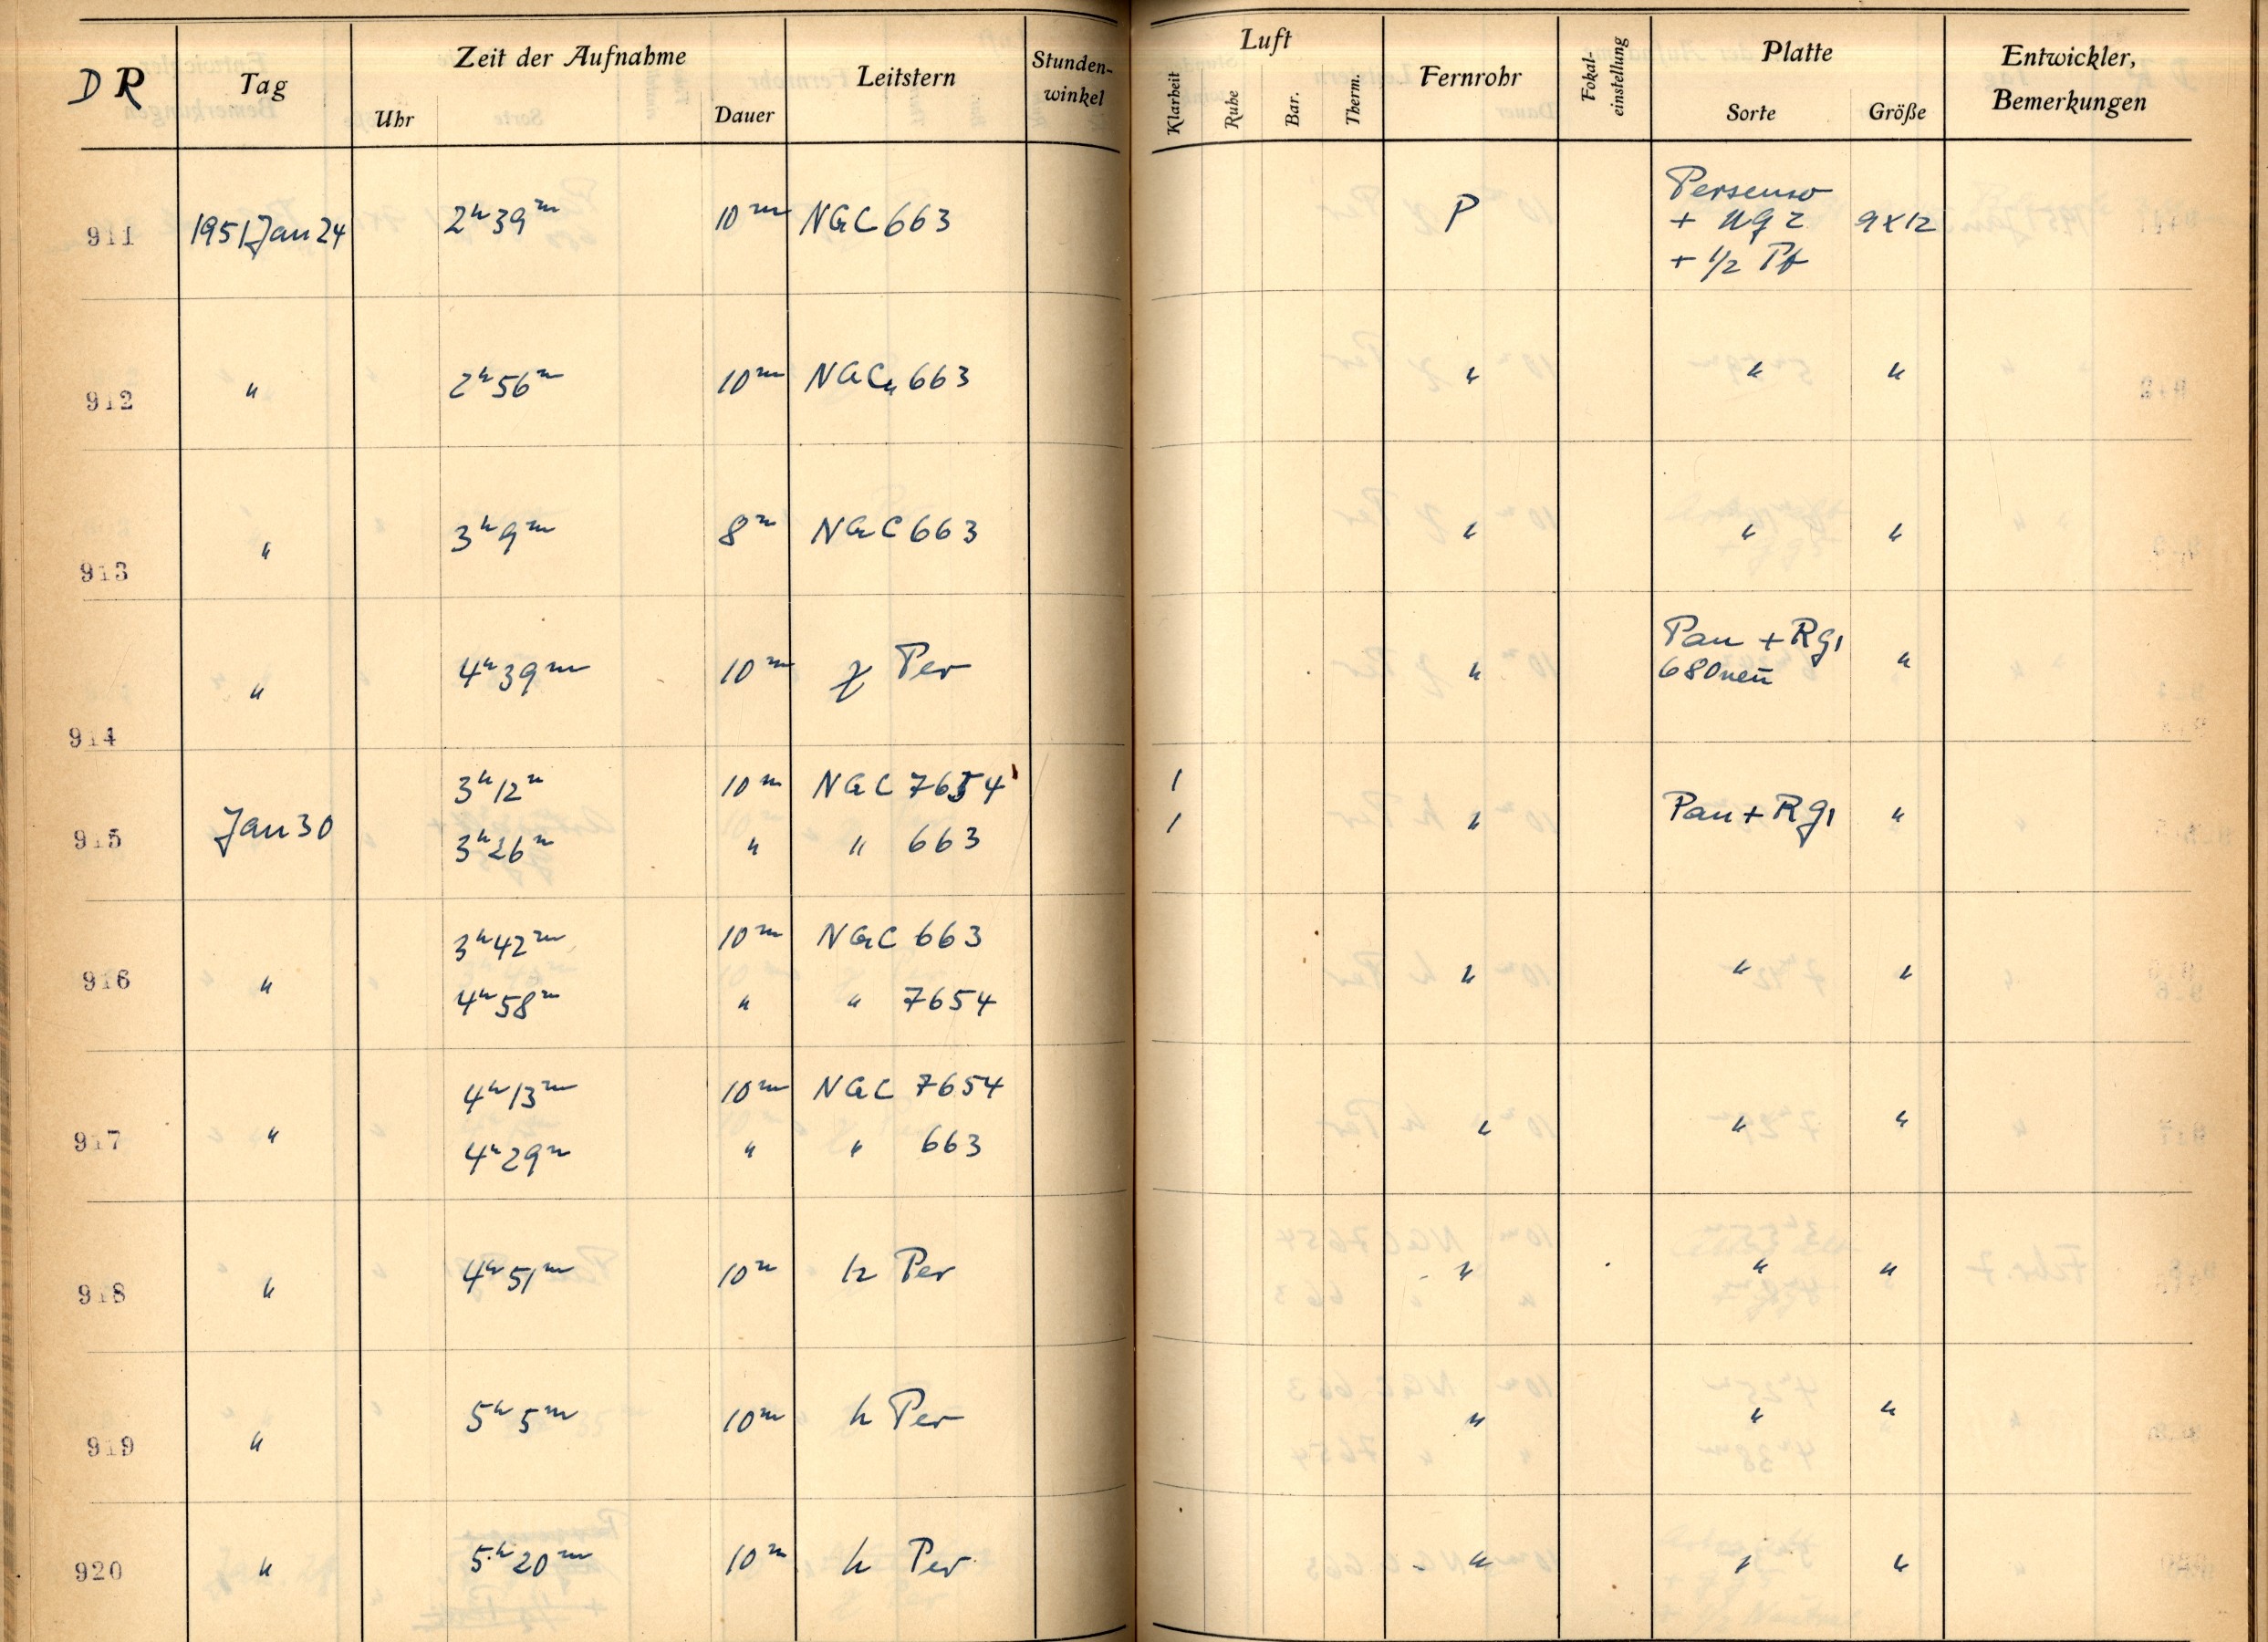 DR Tag Zeit der Aufnahme Uhr Dauer Leitstern Stunden-winkel Luft Klarheit Ruhe Bar. Therm. Fernrohr Fokal-einstellung Platte Sorte Größe Entwickler, Bemerkungen
911 1951 Jan 24 2h 39m 10m NGC 663 P Persenso + UG 2 + 1/2 Pf 9x12
912 " 2h 56m 10m NGC 663 " " "
913 " 3h 9m 8m NGC 663 " " "
914 " 4h 39m 10m χ Per " Pan + Rg1 680 neu "
915 Jan 30 3h 12m 10m NGC 7654 1 " Pan + Rg1 "
3h 26m " " 663 1
916 " 3h 42m 10m NGC 663 " " "
4h 58m " " 7654
917 " 4h 13m 10m NGC 7654 " " "
4h 29m " " 663
918 " 4h 51m 10m h Per " " "
919 " 5h 5m 10m h Per " " "
920 " 5h 20m 10m h Per " " "